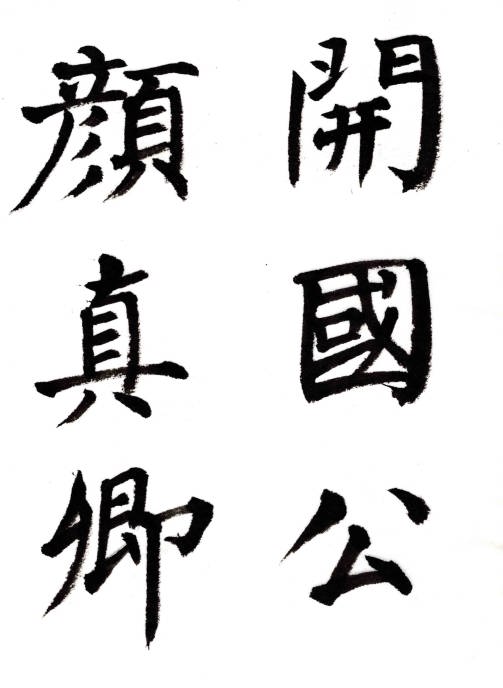 開國公
顔真卿